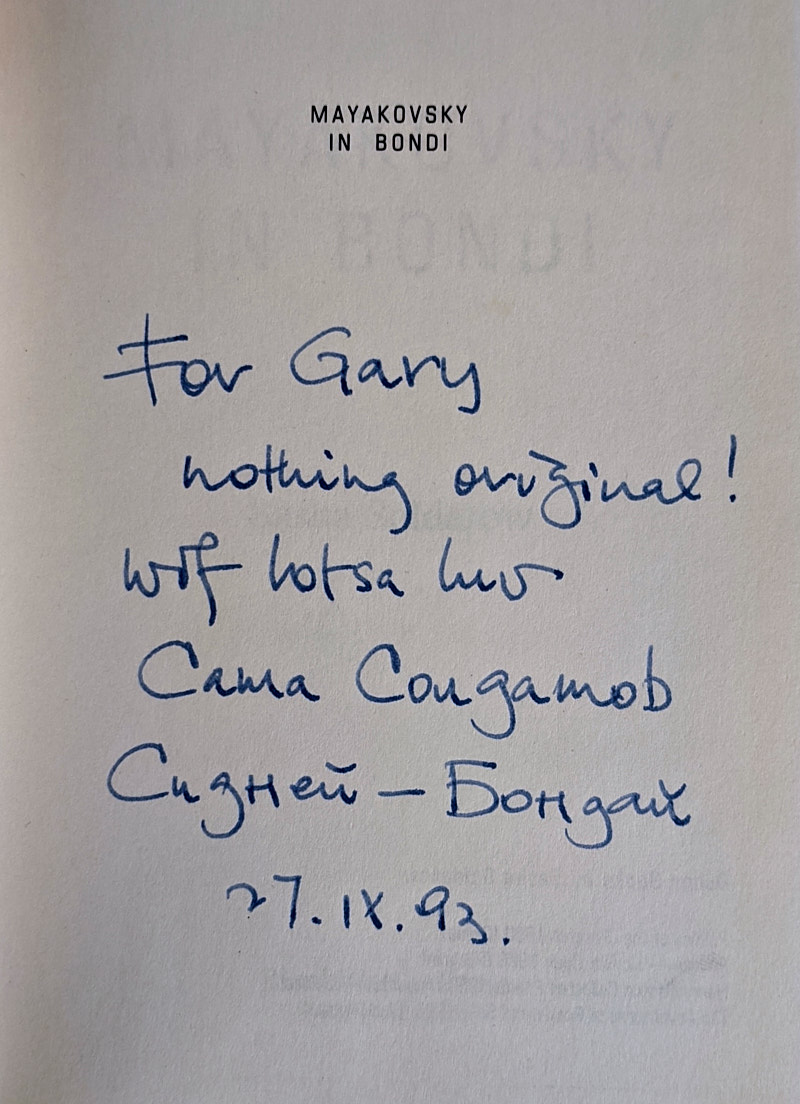 MAYAKOVSKY
IN BONDI
For Gary
nothing original!
wif lotsa luv
Саша Солдатов
Сидней – Бондай
27.IX.93.